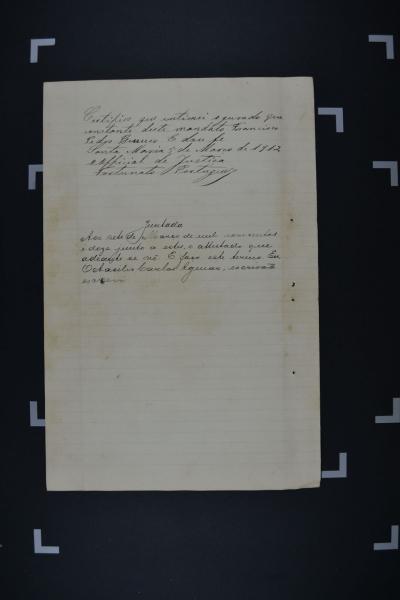 Certifico que intimei o jurado
constante deste mandato, Francisco
Pedro E dou fé
Santa Maria de Março de 1912
O Official de Justiça
Fortunato
Juntada
Aos sete de Março de mil novecentos
e doze junto a estes, o attestado que
adiante se vê. E faço este termo Eu
Carlos escrivão